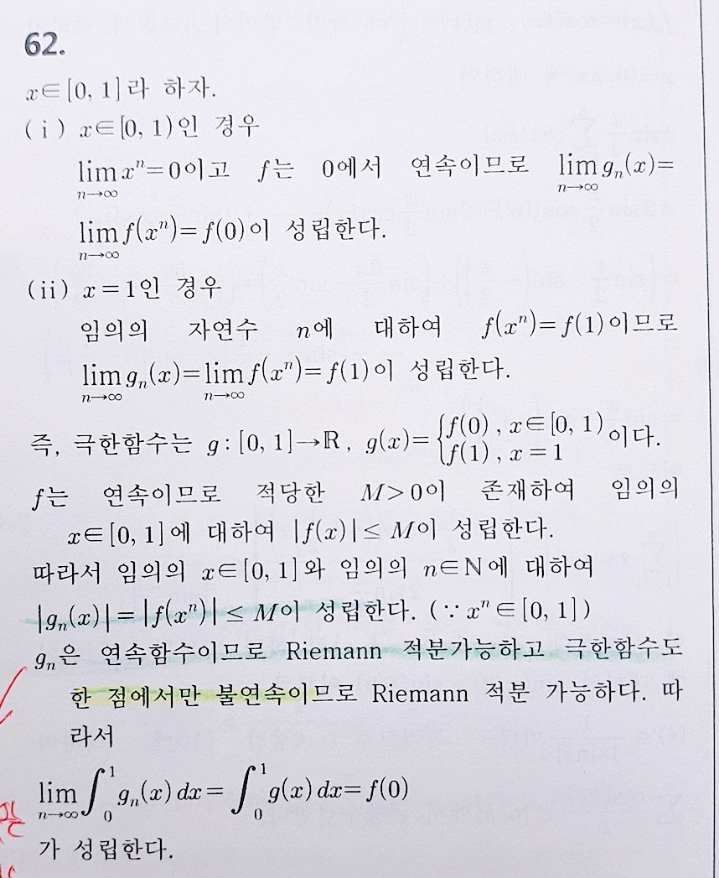 62.
x∈[0, 1]라 하자.
(ⅰ) x∈[0, 1)인 경우
lim_{n→∞} xⁿ=0이고 f는 0에서 연속이므로 lim_{n→∞} gₙ(x)=
lim_{n→∞} f(xⁿ)=f(0)이 성립한다.
(ⅱ) x=1인 경우
임의의 자연수 n에 대하여 f(xⁿ)=f(1)이므로
lim_{n→∞} gₙ(x)=lim_{n→∞} f(xⁿ)=f(1)이 성립한다.
즉, 극한함수는 g : [0, 1]→ℝ, g(x)={f(0), x∈[0, 1) f(1), x=1 이다.
f는 연속이므로 적당한 M>0이 존재하여 임의의
x∈[0, 1]에 대하여 |f(x)|≤M이 성립한다.
따라서 임의의 x∈[0, 1]와 임의의 n∈ℕ에 대하여
|gₙ(x)|=|f(xⁿ)|≤M이 성립한다. (∵ xⁿ∈[0, 1])
gₙ은 연속함수이므로 Riemann 적분가능하고 극한함수도
한 점에서만 불연속이므로 Riemann 적분 가능하다. 따
라서
lim_{n→∞} ∫₀¹ gₙ(x) dx=∫₀¹ g(x) dx=f(0)
가 성립한다.